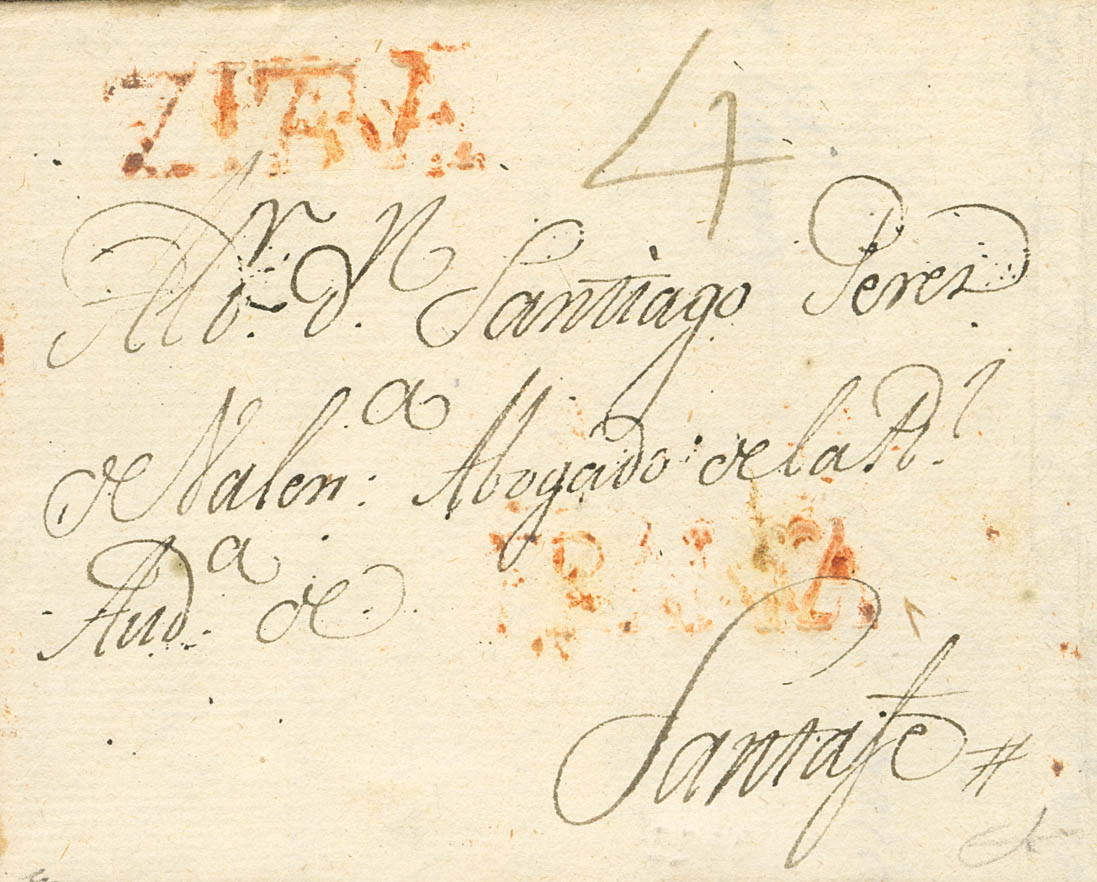 ZITA
4
Al Sr. Dn. Santiago Perez
de Valena. Abogado de la Rl.
Auda. de
Santafe #